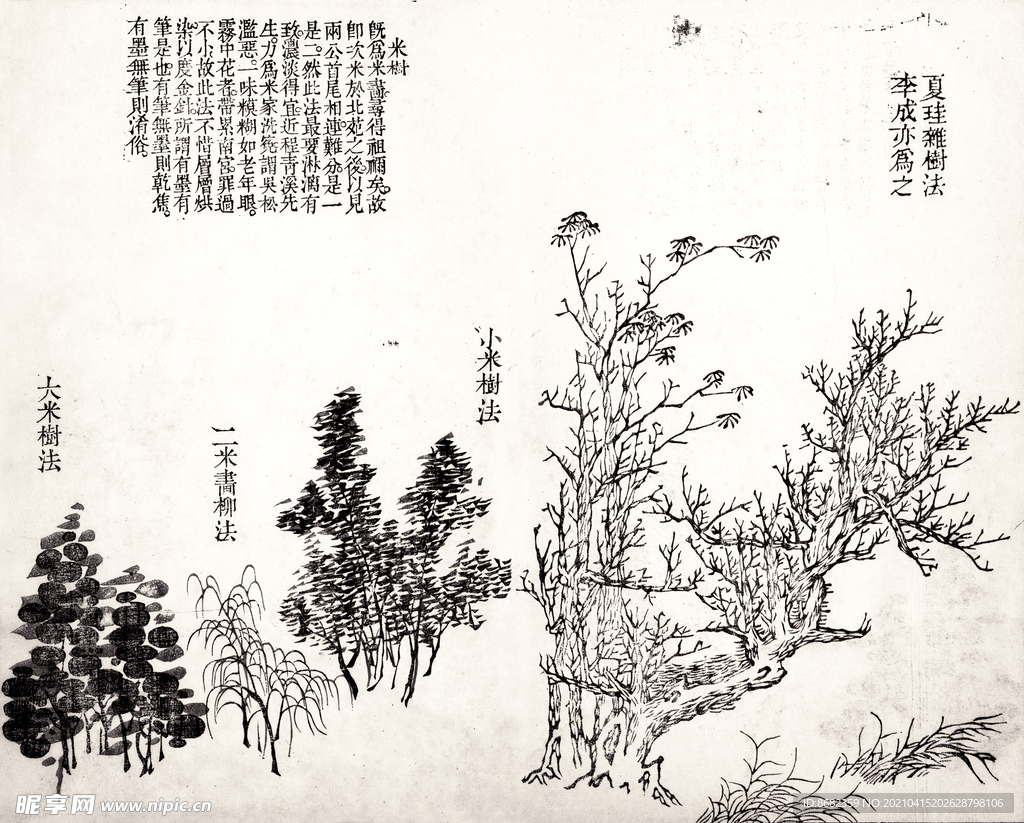 夏珪雜樹法
李成亦爲之
米樹
旣爲米畵尋得祖禰矣。故
卽次米於北苑之後。以見
兩公首尾相連。難分是一
是二。然此法最要淋漓有
致。濃淡得宜。近程靑溪先
生。力爲米家洗寃。謂吳松
濫惡。一味糢糊。如老年眼。
霧中花者。帶累南宮。罪過
不小。故此法不惜層層烘
染。以度金針。所謂有墨有
筆是也。有筆無墨則乾焦。
有墨無筆則渚俗。
小米樹法
二米畵柳法
大米樹法
昵享网 www.nipic.cn
ID:8682359 NO:20210415202628798106